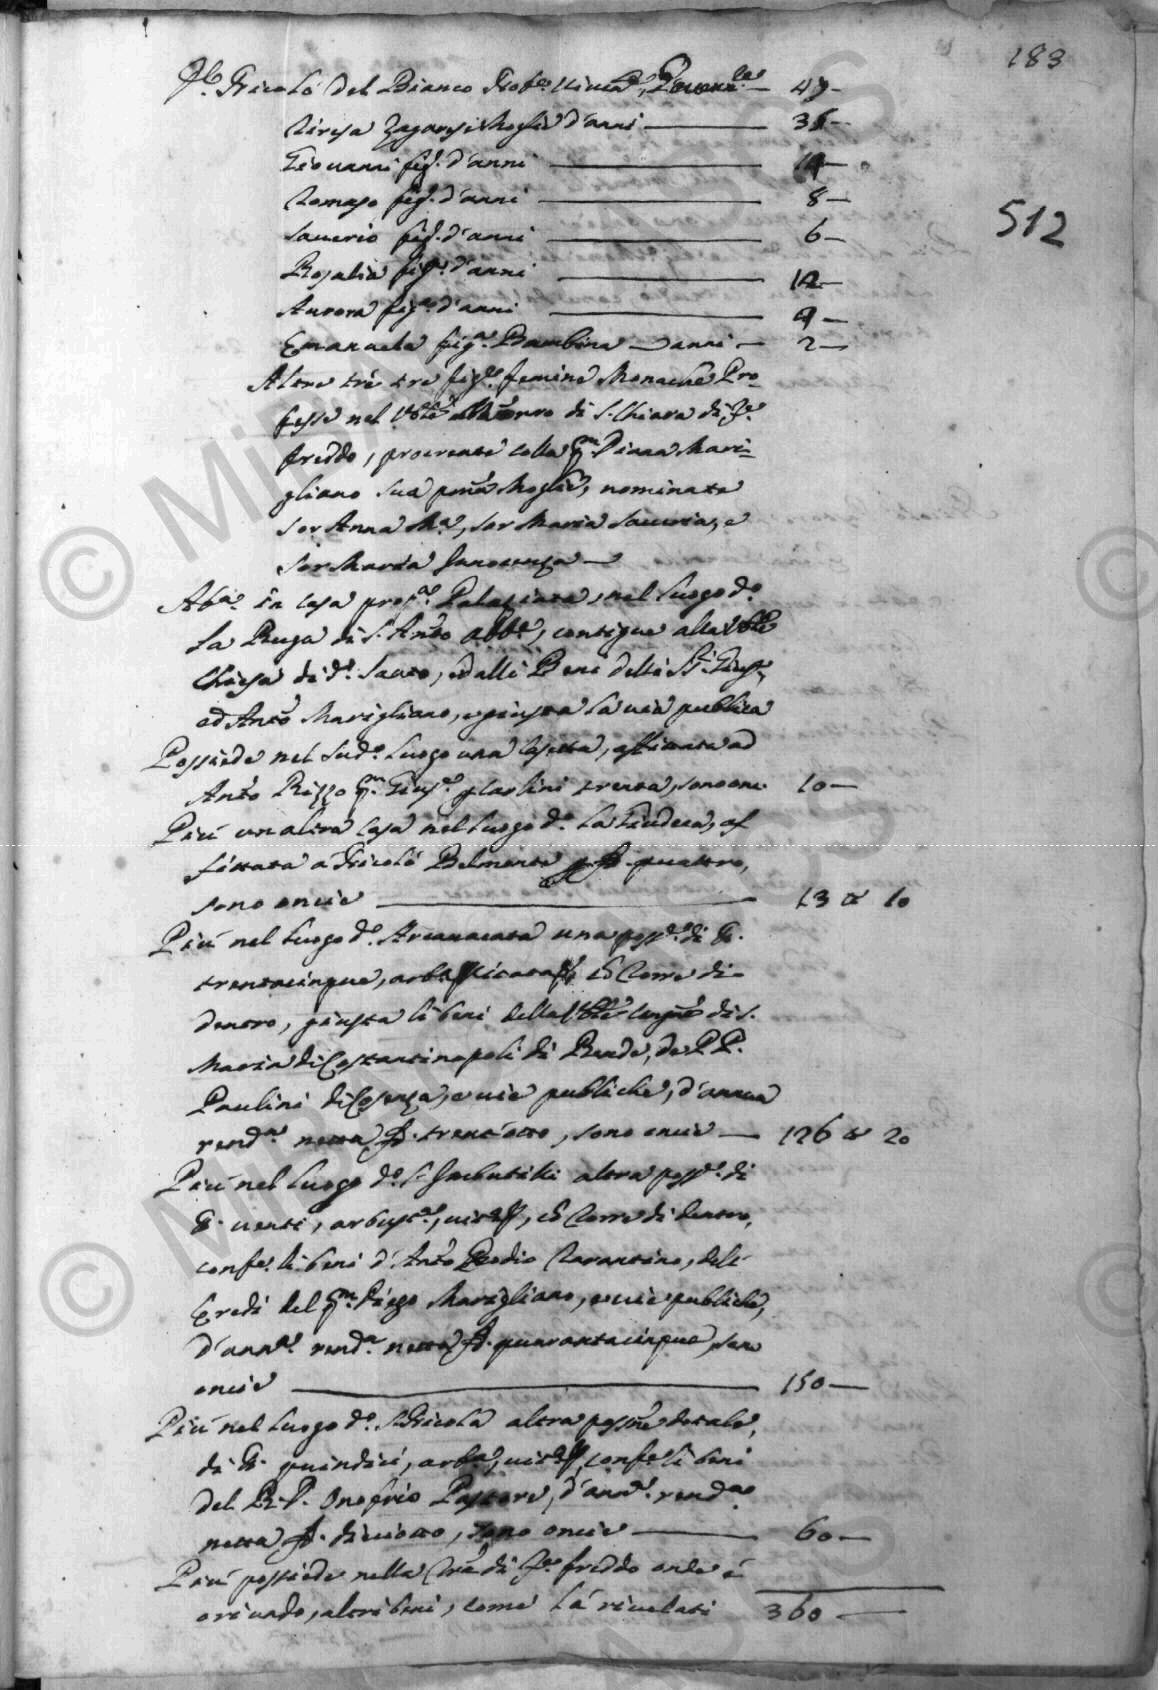 183
512
Nicolò del Bianco Nob. vive 47
Teresa Zagarese Moglie d'anni 36
Giovanni fig. d'anni 14
Tomaso fig. d'anni 8
Saverio fig. d'anni 6
Rosalia fig.ª d'anni 12
Aurora fig.ª d'anni 9
Emanuela fig.ª Bambina d'anni 2
Altre trè figl.e femine Monache Pro-
fesse nel Ven.le Monistero di S. Chiara di Fiume
freddo, procreate colla qm. Diana Mari-
gliano sua prima Moglie, nominate
Sor Anna M.ª, Sor Maria Saveria, e
Sor Maria Innocenza
Ab.ª in casa prop.ª Palaziata, nel luogo d.º
la Ruga di S. Ant.o Abb.e, contigue alla Ven.le
Chiesa di d.º Santo, dalli Beni delli
ed Ant.o Marigliano, e giusta la via publica
Possiede nel sud.º luogo una casetta, affittata ad
Ant.o Rizzo qm. Gius.e p. carlini trenta, sono onc. 10
Più un altra casa nel luogo d.º la Giudeca, af-
fittata a Nicolò Belmonte p. d. quattro,
sono oncie 13 10
Più nel luogo d.º Arcavacata una poss.e di
trentacinque, arbustata, vitata, con Torre di
dentro, giusta li beni della Ven.le di S.
Maria di Costantinopoli di Rende, de PP.
Paulini di Cosenza, e vie publiche, d'annua
rend.ª netta d. trent'otto, sono oncie 126 20
Più nel luogo d.º altra poss.e di
venti, arbust.ª, vitata, con Torre di dentro,
conf.e li beni d'Ant.o Rodio Tarantino, deli
Eredi del qm. Diego Marigliano, e vie publiche,
d'ann.ª rend.ª netta d. quarantacinque, sono
oncie 150
Più nel luogo d.º S. Nicola altra poss.ne dotale,
di quindici, arb.ª, vitata, conf.e li beni
del R. P. Onofrio Pastore, d'ann.ª rend.ª
netta d. dieciotto, sono oncie 60
Più possiede nella Terra di Fiume freddo onde è
oriundo, altri beni, come la rivelati 360